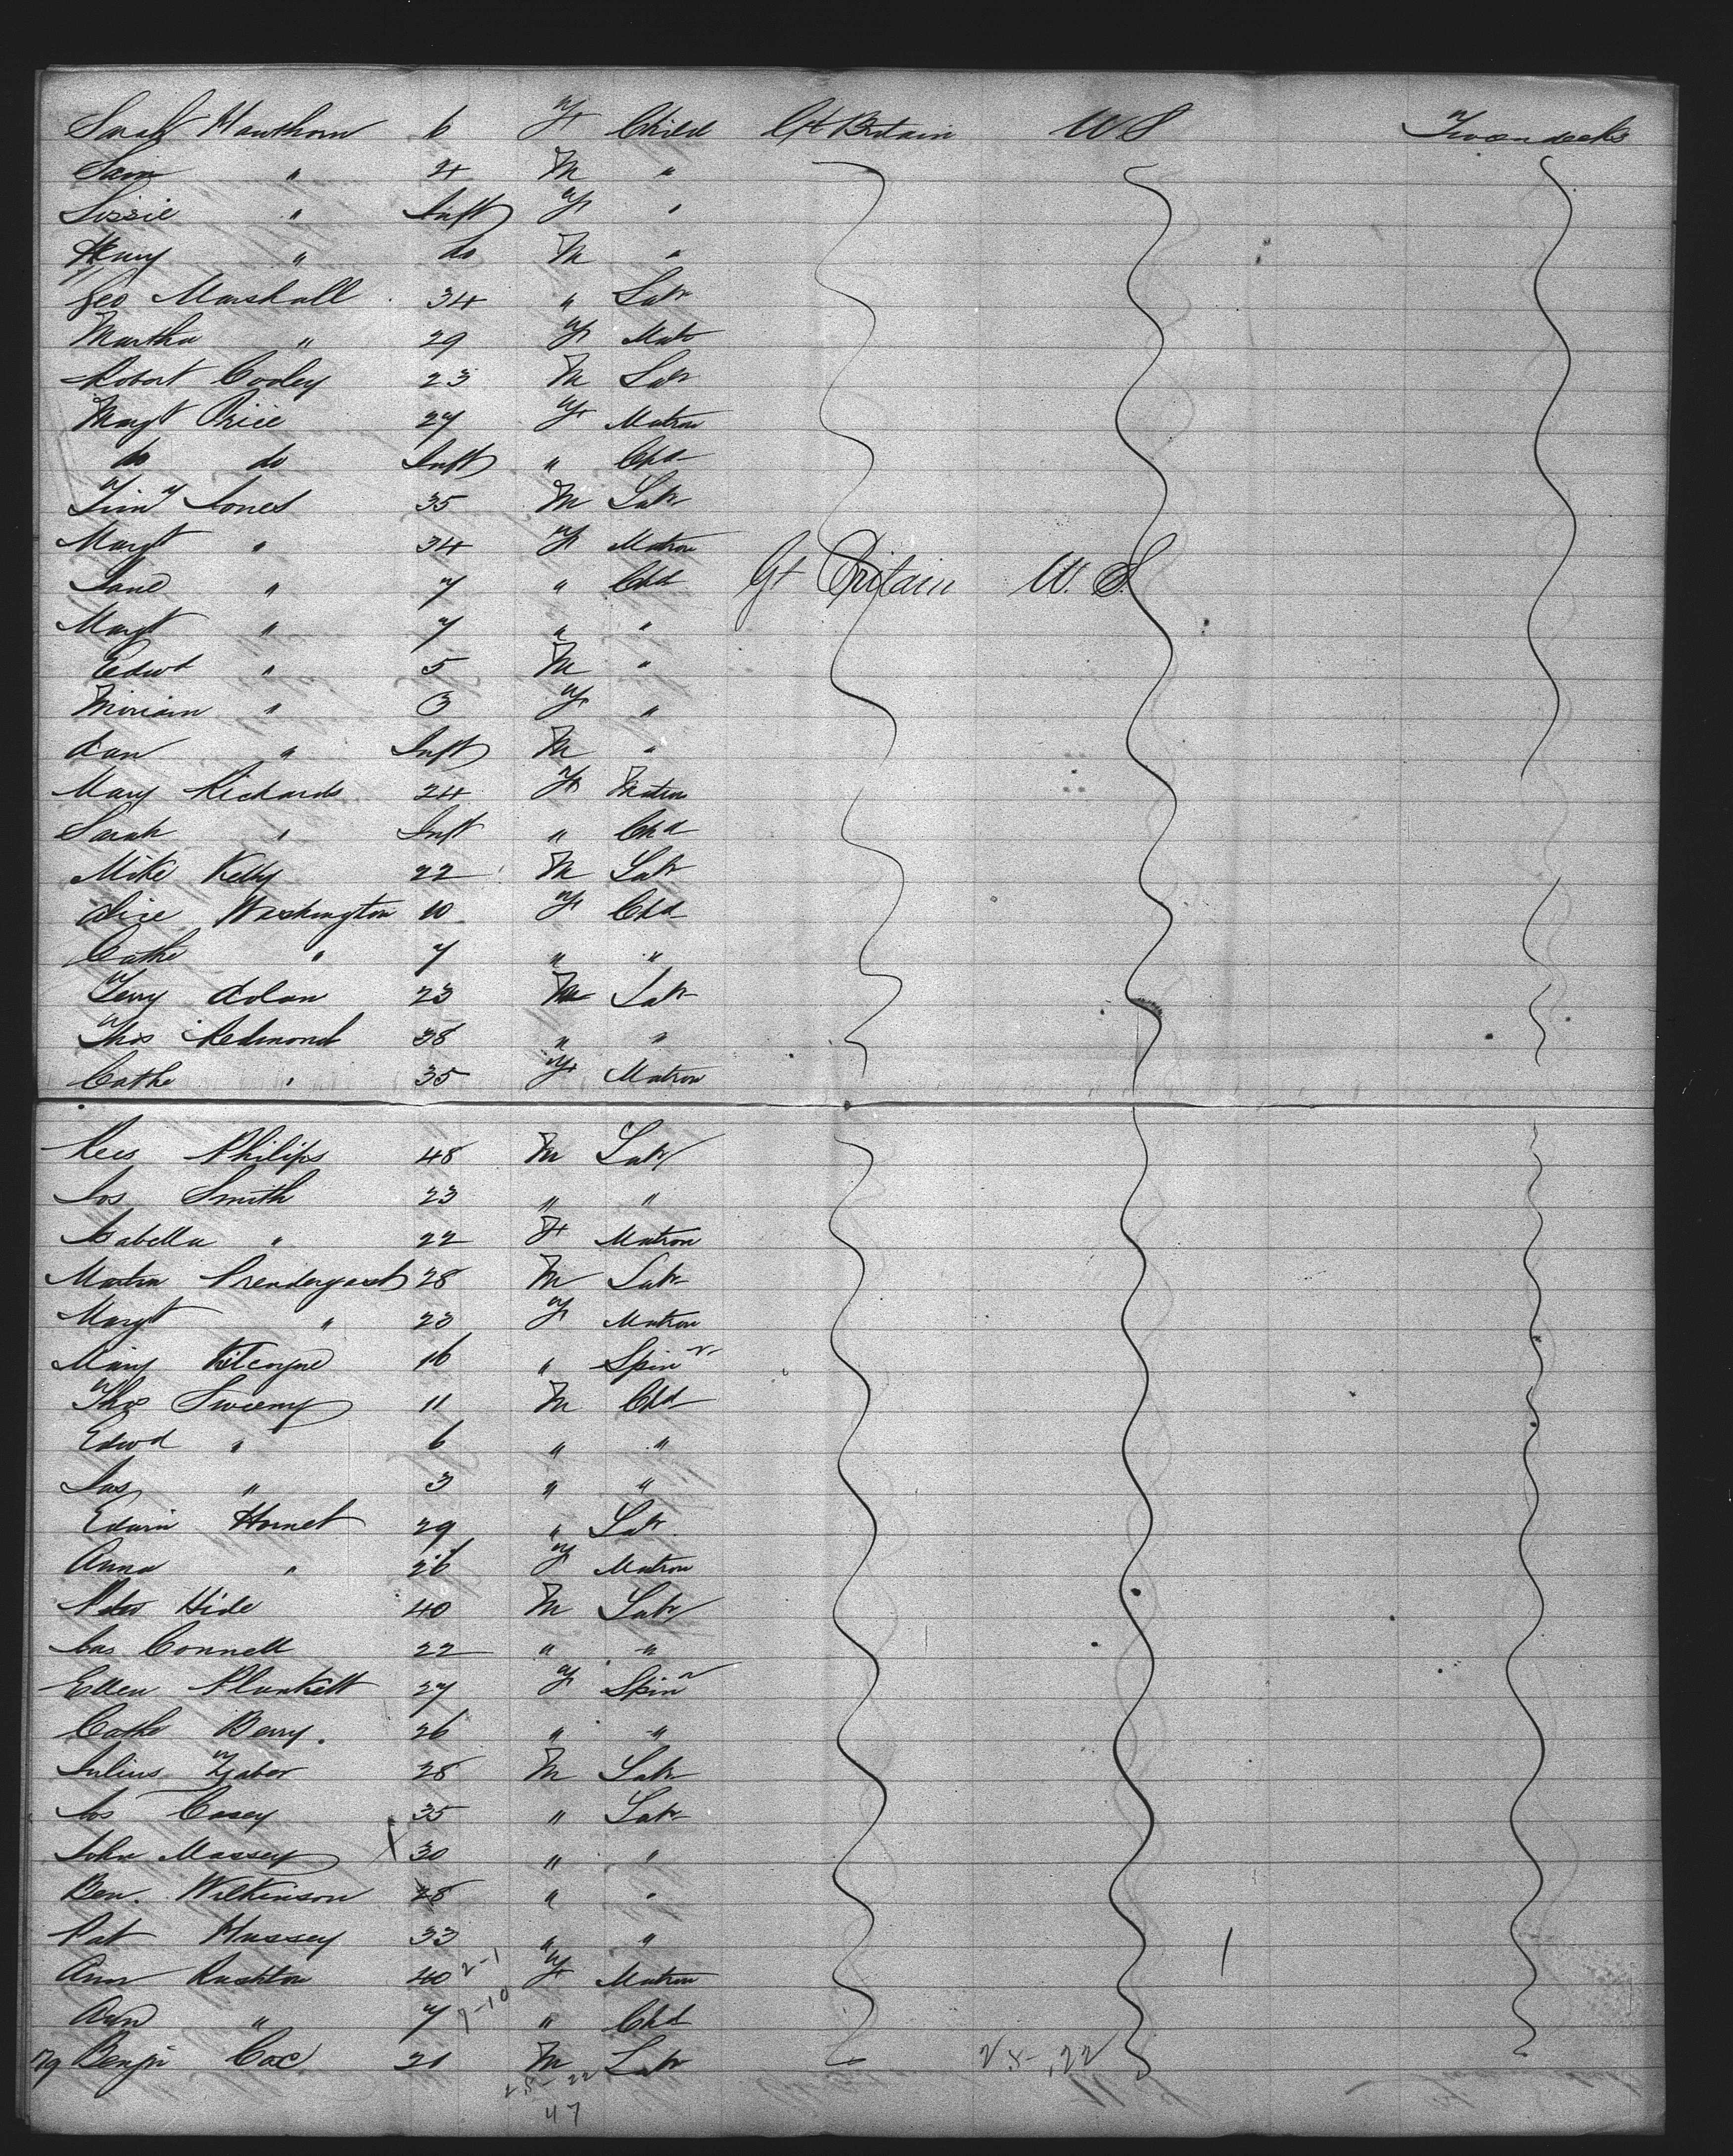 Sarah Hawthorn 6 F Child Gt Britain U S Tween decks
Sam " 4 M "
Lizzie " Inft F "
Henry " do M "
Geo Marshall 34 " Labr
Martha " 29 F Matr
Robert Cooley 23 M Labr
Margt Price 27 F Matron
do do Inft " Chd
Timy Jones 35 M Labr
Margt " 34 F Matron
Jane " 7 " Chd Gt Britain U. S.
Margt " 7 " "
Edwd " 5 M "
Miriam " 3 F "
Dan " Inft M "
Mary Richards 24 F Matron
Sarah " Inft " Chd
Mike Kelly 22 M Labr
Alice Washington 10 F Chd
Cathe " 7 " "
Terry Dolan 23 M Labr
Thos Redmond 38 " "
Cathe " 35 F Matron
Rees Philips 48 M Labr
Jos Smith 23 " "
Isabella " 22 F Matron
Martin Prendergast 28 M Labr
Margt " 23 F Matron
Mary Kilcoyne 16 " Spinr
Thos Sweeny 11 M Chd
Edwd " 6 " "
Jas " 3 " "
Edwin Hornet 29 " Labr
Anna " 26 F Matron
Peter Hide 40 M Labr
Jas Connell 22 " "
Ellen Plunkett 27 F Spinr
Cathe Berry. 26 " "
Julius 28 M Labr
Jos Casey 35 " Labr
John Massey X 30 " "
Ben. Wilkinson 28 " "
Pat Hussey 33 " "
Ann Rushton 40 2-1 F Matron
Ann " 7 7-10 " Chd
Benjn Cox 21 M Labr 25-,22
25-22
47